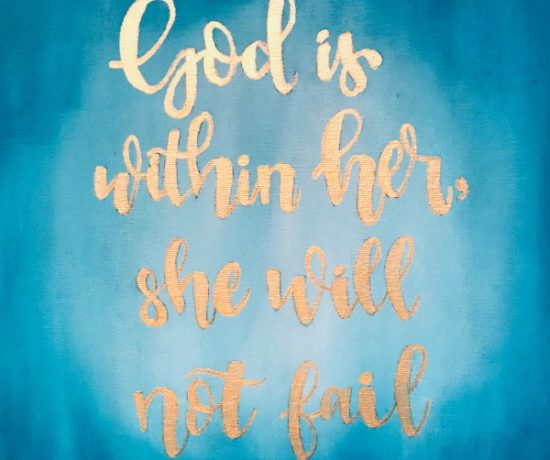 God is
within her,
she will
not fail